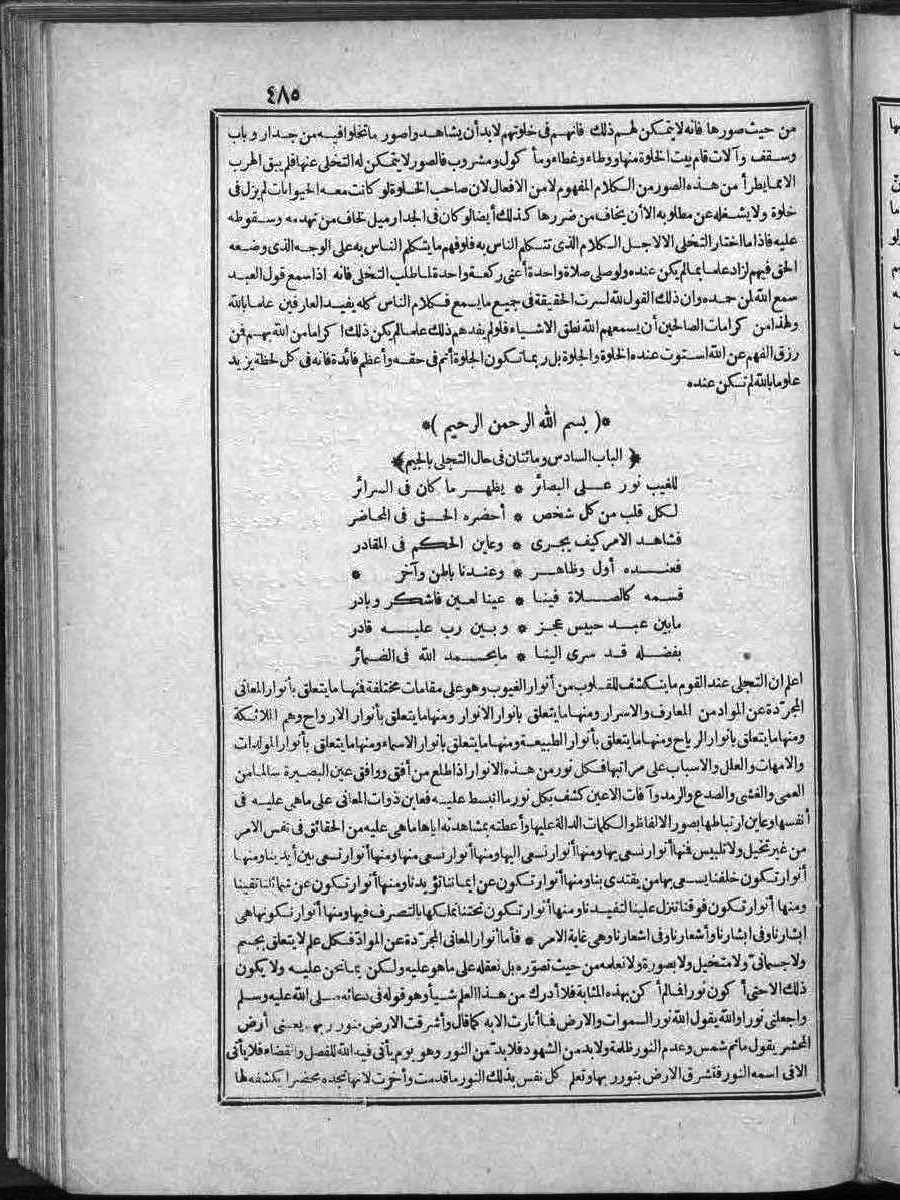 ٤٨٥
من حيث صورها فانه لا يتمكن لهم ذلك فانهم فى خلوتهم لا بد أن يشاهدوا صور ما تخلوا فيه من جدار وباب
وسقف وآلات قام بيت الخلوة منها ووطاء وغطاء ومأكول ومشروب فالصور لا يتمكن له التخلى عنها فلم يبق الهرب
الا مما يطرأ من هذه الصور من الكلام المفهوم لا من الافعال لان صاحب الخلوة لو كانت معه الحيوانات لم يزل فى
خلوة ولا يشغله عن مطلوبه الا أن يخاف من ضررها كذلك أيضا لو كان فى الجدار ميل لخاف من تهدمه وسقوطه
عليه فاذا ما اختار التخلى الا لاجل الكلام الذى تتكلم الناس به فلو فهم ما يتكلم الناس به على الوجه الذى وضعه
الحق فيهم لزاد علما بما لم يكن عنده ولو صلى صلاة واحدة أعنى ركعة واحدة لما طلب التخلى فانه اذا سمع قول العبد
سمع الله لمن حمده وان ذلك القول لله لسرت الحقيقة فى جميع ما يسمع فكلام الناس كله يفيد العارفين علما بالله
ولهذا من كرامات الصالحين أن يسمعهم الله نطق الاشياء فلو لم يفدهم ذلك علما لم يكن ذلك اكراما من الله بهم فمن
رزق الفهم عن الله استوت عنده الخلوة والجلوة بل ربما تكون الجلوة أتم فى حقه وأعظم فائدة فانه فى كل لحظة يزيد
علوما بالله لم تكن عنده
*( بسم الله الرحمن الرحيم )*
﴿ الباب السادس ومائتان فى حال التجلى بالجيم ﴾
للغيب نور على البصائر * يظهر ما كان فى السرائر
لكل قلب من كل شخص * أحضره الحق فى المحاضر
فشاهد الامر كيف يجرى * وعاين الحكم فى المقادر
فعنده أول وظاهر * وعندنا باطن وآخر *
قسمه كالصلاة فينا * عينا لعين فاشكر وبادر
ما بين عبد حبيس عجز * وبين رب عليه قادر
بفضله قد سرى الينا * ما يحمد الله فى الضمائر *
اعلم ان التجلى عند القوم ما ينكشف للقلوب من أنوار الغيوب وهو على مقامات مختلفة فمنها ما يتعلق بأنوار المعانى
المجرّدة عن المواد من المعارف والاسرار ومنها ما يتعلق بانوار الانوار ومنها ما يتعلق بأنوار الارواح وهم الملائكة
ومنها ما يتعلق بانوار الرياح ومنها ما يتعلق بأنوار الطبيعة ومنها ما يتعلق بانوار الاسماء ومنها ما يتعلق بأنوار المولدات
والامهات والعلل والاسباب على مراتبها فكل نور من هذه الانوار اذا طلع من أفق ووافق عين البصيرة سالما من
العمى والغشى والصدع والرمد وآفات الاعين كشف بكل نور ما انبسط عليه فعاين ذوات المعانى على ما هى عليه فى
أنفسها وعاين ارتباطها بصور الالفاظ والكلمات الدالة عليها وأعطته بمشاهدته اياها ما هى عليه من الحقائق فى نفس الامر
من غير تخيل ولا تلبيس فمنها أنوار نسعى بها ومنها أنوار نسعى اليها ومنها أنوار نسعى منها ومنها أنوار تسعى بين أيدينا ومنها
أنوار تكون خلفنا يسعى بها من يقتدى بنا ومنها أنوار تكون عن إيماننا تؤيدنا ومنها أنوار تكون عن شمائلنا تقينا
ومنها أنوار تكون فوقنا تنزل علينا لتفيدنا ومنها أنوار تكون تحتنا نملكها بالتصرف فيها ومنها أنوار نكونها هى
ابشارنا وفى ابشارنا وأشعارنا وفى اشعارنا وهى غاية الامر * فأما أنوار المعانى المجرّدة عن الموادّ فكل علم لا يتعلق بجسم
ولا جسمانىّ ولا متخيل ولا بصورة ولا نعلمه من حيث تصوّره بل نعقله على ما هو عليه ولكن بما نحن عليه ولا يكون
ذلك الا حتى أكون نورا فما لم أكن بهذه المثابة فلا أدرك من هذا العلم شيأ وهو قوله فى دعائه صلى الله عليه وسلم
واجعلنى نورا والله يقول الله نور السموات والارض فما أنارت الا به كما قال وأشرقت الارض بنور ربها يعنى أرض
المحشر يقول ما ثم شمس وعدم النور ظلمة ولا بد من الشهود فلا بدّ من النور وهو يوم يأتى فيه الله للفصل والقضاء فلا يأتى
الا فى اسمه النور فتشرق الارض بنور ربها وتعلم كل نفس بذلك النور ما قدمت وأخرت لانها تجده محضرا يكشفه لها